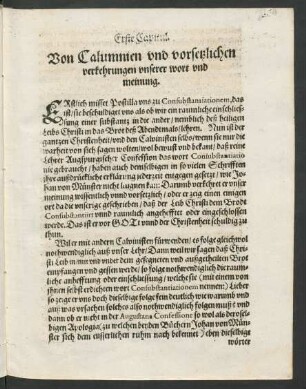 Erste Capitel.
Von Calumnien vnd vorsetzlichen
verkehrungen vnserer wort vnd
meinung.
ERstlich misset Postilla vns zu Consubstantiationem, das
ist / sie beschuldiget vns als ob wir ein raumliche einschlies-
sung einer substantz in der ander / nemblich deß heiligen
Leibs Christi in das Brot deß Abendmals / lehren. Nun ist der
gantzen Christenheit / vnd den Caluinisten selbs / wenn sie nur die
warheit von sich sagen wolten / wol bewust vnd bekant / daß reine
Lehrer Augspurgischer Confession das wort Consubstantiatio
nie gebraucht / haben auch demselbigen in so vielen Schrifften
ihre außdrückliche erklärung jederzeit entgegen gesetzt / wie Jo-
han von Münster nicht laugnen kan: Darumb verkehret er vnser
meinung wissentlich vnnd vorsetzlich / oder er zeig einen eingen
ort da die vnserige geschrieben / daß der Leib Christi dem Brodt
Consubstantiirt vnnd raumlich angehefftet oder eingeschlossen
werde. Das ist er vor GOTt vnnd der Christenheit schuldig zu
thun.
Wil er mit andern Calvinisten fürwenden / es folge gleichwol
nothwendiglich auß vnser Lehr: Dann weil wir sagen daß Chri-
sti Leib in mit vnd vnder dem gesegneten vnd außgetheilten Brot
empfangen vnd gessen werde / so folge nothwendiglich die raum-
liche anhefftung oder einschliessung / welche sie (mit einem von
jhnen selbst erdichten wort Consubstantiationem nennen) Lieber
so zeige er vns doch dieselbige folge fein deutlich wie warumb vnd
auß was vrsachen solches also nothwendiglich folgen muß? vnd
dann ob er nicht in der Augustana Confessione so wol als derosel-
bigen Apologia / zu welchen beyden Büchern Johan von Mün-
ster sich dem eusserlichen ruhm nach bekennet / eben dieselbige
wörter